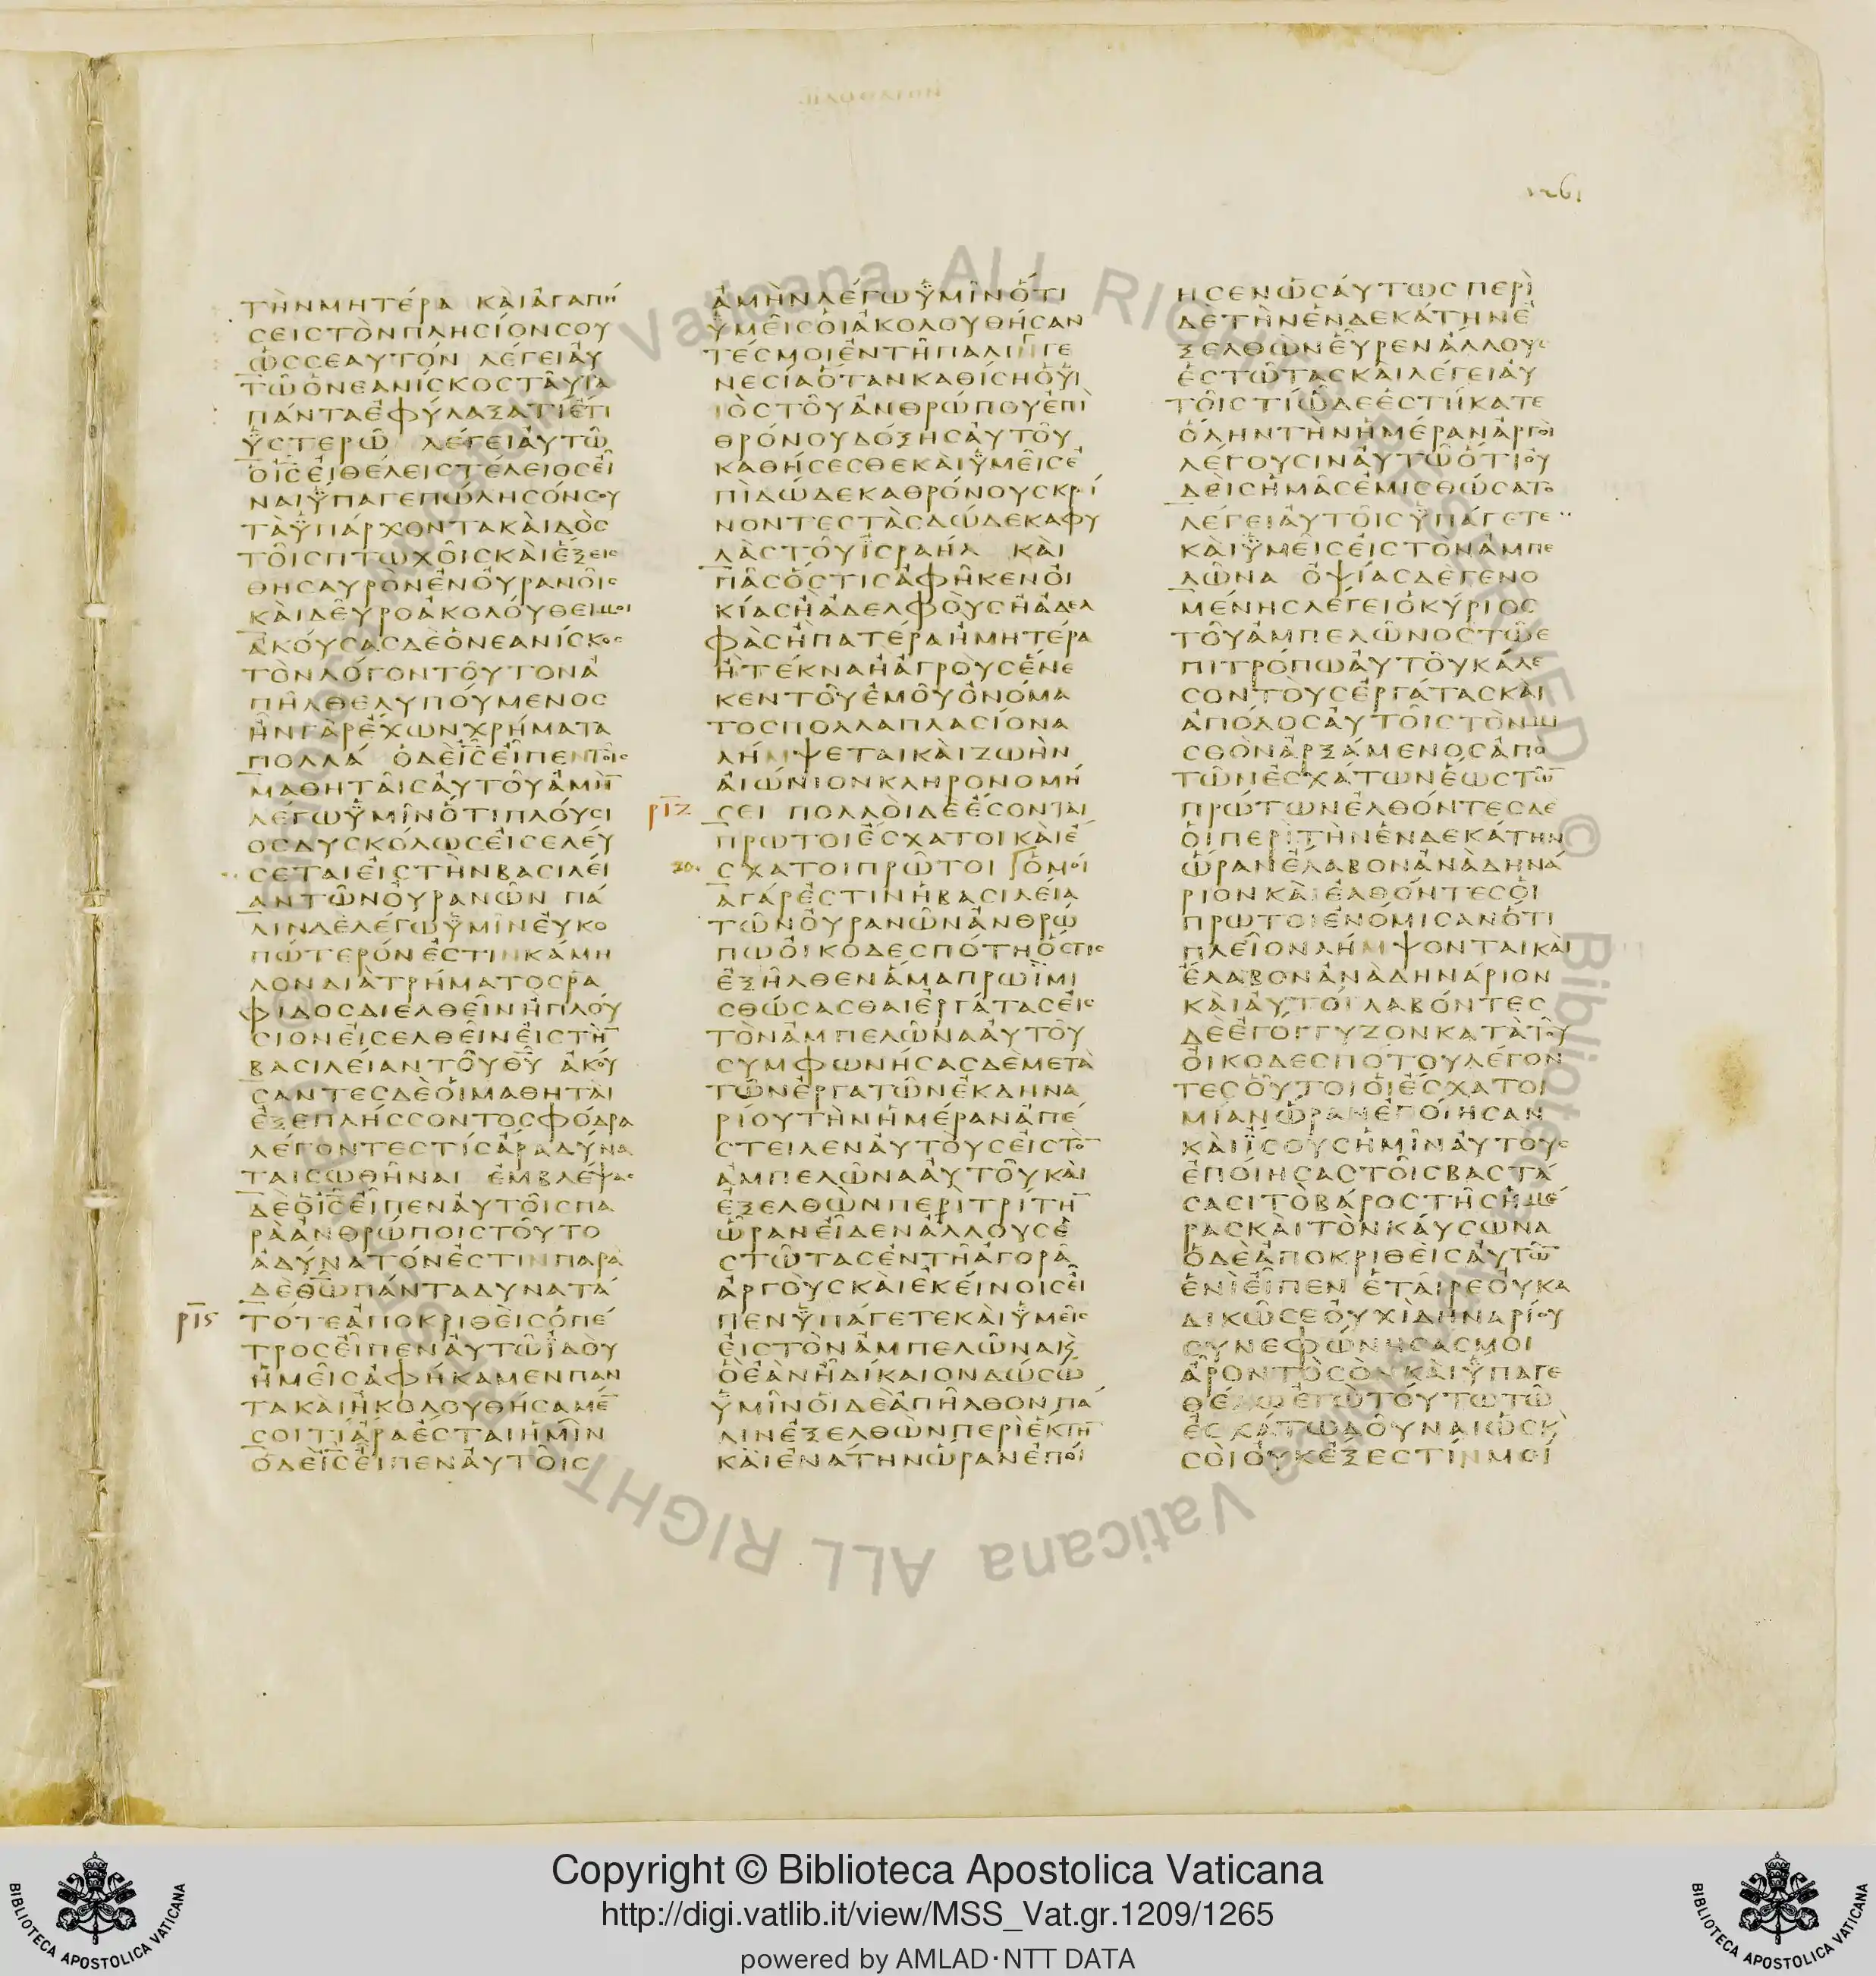 1261
ΤῊΝΜΗΤΈΡΑ ΚΑῚἈΓΑΠΉ
ΣΕΙΣΤῸΝΠΛΗΣΊΟΝΣΟΥ
ὩΣΣΕΑΥΤΌΝ ΛΈΓΕΙΑΥ
ΤΩ͂ὉΝΕΑΝΊΣΚΟΣΤΑΥ͂ΤΑ
ΠΆΝΤΑἘΦΎΛΑΞΑΤΊἜΤΙ
ὙΣΤΕΡΩ͂ ΛΈΓΕΙΑΥΤΩ͂
ὉΙ̅Σ̅ΕἸΘΈΛΕΙΣΤΈΛΕΙΟΣΕΙ͂
ΝΑΙὝΠΑΓΕΠΏΛΗΣΌΝΣΟΥ
ΤᾺὙΠΆΡΧΟΝΤΑΚΑῚΔῸΣ
ΤΟΙ͂ΣΠΤΩΧΟΙ͂ΣΚΑῚἝΞΕΙΣ
ΘΗΣΑΥΡῸΝἘΝΟΥΡΑΝΟΙ͂Σ
ΚΑῚΔΕΥ͂ΡΟἈΚΟΛΟΎΘΕΙΜΟΙ
ἈΚΟΎΣΑΣΔῈὉΝΕΑΝΊΣΚΟΣ
ΤῸΝΛΌΓΟΝΤΟΥ͂ΤΟΝἈ
ΠΗ͂ΛΘΕΛΥΠΟΎΜΕΝΟΣ
ἮΝΓᾺΡἜΧΩΝΧΡΉΜΑΤΑ
ΠΟΛΛΆ ὉΔῈΙ̅Σ̅ΕΙ͂ΠΕΝΤΟΙ͂Σ
ΜΑΘΗΤΑΙ͂ΣΑΥΤΟΥ͂ἈΜῊ̅
ΛΈΓΩὙΜΙ͂ΝὍΤΙΠΛΟΎΣΙ
ΟΣΔΥΣΚΌΛΩΣΕἸΣΕΛΕΎ
ΣΕΤΑΙΕἸΣΤῊΝΒΑΣΙΛΕΊ
ΑΝΤΩ͂ΝΟΥΡΑΝΩ͂Ν ΠΆ
ΛΙΝΔῈΛΈΓΩὙΜΙ͂ΝΕΥΚΟ
ΠΏΤΕΡΌΝἘΣΤΙΝΚΆΜΗ
ΛΟΝΔΙᾺΤΡΉΜΑΤΟΣΡΑ
ΦΊΔΟΣΔΙΕΛΘΕΙ͂ΝἪΠΛΟΎ
ΣΙΟΝΕἸΣΕΛΘΕΙ͂ΝΕἸΣΤῊ̅
ΒΑΣΙΛΕΊΑΝΤΟΥ͂Θ̅Υ̅ ἈΚΟΎ
ΣΑΝΤΕΣΔῈὉΙΜΑΘΗΤΑῚ
ἘΞΕΠΛΉΣΣΟΝΤΟΣΦΌΔΡΑ
ΛΈΓΟΝΤΕΣΤΊΣἌΡΑΔΎΝΑ
ΤΑΙΣΩΘΗ͂ΝΑΙ ἘΜΒΛΈΨΑΣ
ΔῈὉΙ̅Σ̅ΕΙ͂ΠΕΝΑΥΤΟΙ͂ΣΠΑ
ΡᾺἈΝΘΡΏΠΟΙΣΤΟΥ͂ΤΟ
ἈΔΎΝΑΤΌΝἘΣΤΙΝΠΑΡᾺ
ΔῈΘ̅Ω̅ΠΆΝΤΑΔΥΝΑΤΆ
ρις ΤΌΤΕἈΠΟΚΡΙΘΕῚΣὉΠΈ
ΤΡΟΣΕΙ͂ΠΕΝΑΥΤΩ͂ἸΔΟῪ
ἩΜΕΙ͂ΣἈΦΉΚΑΜΕΝΠΑΝ
ΤΑΚΑῚἨΚΟΛΟΥΘΉΣΑΜΈ̅
ΣΟΙΤΊἌΡΑἜΣΤΑΙἩΜΙ͂Ν
ὉΔῈΙ̅Σ̅ΕΙ͂ΠΕΝΑΥΤΟΙ͂Σ
ἈΜῊΝΛΈΓΩὙΜΙ͂ΝὍΤΙ
ὙΜΕΙ͂ΣὉΙἈΚΟΛΟΥΘΉΣΑΝ
ΤΈΣΜΟΙἘΝΤΗ͂ΠΑΛΙΓΓΕ
ΝΕΣΊΑὍΤΑΝΚΑΘΊΣΗὉΥ
ΙῸΣΤΟΥ͂ἈΝΘΡΏΠΟΥἘΠῚ
ΘΡΌΝΟΥΔΌΞΗΣΑΥΤΟΥ͂
ΚΑΘΉΣΕΣΘΕΚΑῚὙΜΕΙ͂ΣἘ
ΠῚΔΏΔΕΚΑΘΡΌΝΟΥΣΚΡΊ
ΝΟΝΤΕΣΤᾺΣΔΏΔΕΚΑΦΥ
ΛᾺΣΤΟΥ͂ἸΣΡΑΉΛ ΚΑῚ
ΠΑ͂ΣὍΣΤΙΣἈΦΗ͂ΚΕΝΟἸ
ΚΊΑΣἪἈΔΕΛΦΟῪΣἪἈΔΕΛ
ΦᾺΣἪΠΑΤΈΡΑἪΜΗΤΈΡΑ
ἪΤΈΚΝΑἪἈΓΡΟῪΣἝΝΕ
ΚΕΝΤΟΥ͂ἘΜΟΥ͂ὈΝΌΜΑ
ΤΟΣΠΟΛΛΑΠΛΑΣΊΟΝΑ
ΛΉΜΨΕΤΑΙΚΑῚΖΩῊΝ
ΑἸΏΝΙΟΝΚΛΗΡΟΝΟΜΉ
ριζ ΣΕΙ ΠΟΛΛΟῚΔΕἜΣΟΝΤΑΙ
ΠΡΩΤΟΙἜΣΧΑΤΟΙΚΑῚἜ
20. ΣΧΑΤΟΙΠΡΩ͂ΤΟΙ ὉΜΟΊ
ΑΓΆΡἘΣΤΙΝἩΒΑΣΙΛΕΊΑ
ΤΩ͂ΝΟΥΡΑΝΩ͂ΝἈΝΘΡΏ
ΠΩΟἸΚΟΔΕΣΠΌΤΗὍΣΤΙΣ
ἘΞΗ͂ΛΘΕΝἍΜΑΠΡΩῚΜΙ
ΣΘΏΣΑΣΘΑΙἘΡΓΆΤΑΣΕἸΣ
ΤῸΝἈΜΠΕΛΩ͂ΝΑΑΥΤΟΥ͂
ΣΥΜΦΩΝΉΣΑΣΔῈΜΕΤᾺ
ΤΩ͂ΝἘΡΓΑΤΩ͂ΝἘΚΔΗΝΑ
ΡΊΟΥΤῊΝἩΜΈΡΑΝἈΠΈ
ΣΤΕΙΛΕΝΑΥΤΟῪΣΕἸΣΤῸ̅
ἈΜΠΕΛΩ͂ΝΑΑΥΤΟΥ͂ΚΑῚ
ἘΞΕΛΘῺΝΠΕΡῚΤΡΊΤΗ̅
ὭΡΑΝΕΙ͂ΔΕΝἌΛΛΟΥΣἙ
ΣΤΩ͂ΤΑΣἘΝΤΗ͂ἈΓΟΡΑ͂
ἈΡΓΟῪΣΚΑῚἘΚΕΊΝΟΙΣΕΙ͂
ΠΕΝὙΠΆΓΕΤΕΚΑῚὙΜΕΙ͂Σ
ΕἸΣΤῸΝἈΜΠΕΛΩ͂ΝΑΚ̀
ὋἘᾺΝΗ͂ΔΊΚΑΙΟΝΔΏΣΩ
ὙΜΙ͂ΝὉΙΔΕἈΠΗ͂ΛΘΟΝΠΆ
ΛΙΝἘΞΕΛΘῺΝΠΕΡῚἝΚΤΗ̅
ΚΑῚἘΝΆΤΗΝὭΡΑΝἘΠΟΊ
ΗΣΕΝὩΣΑΎΤΩΣ ΠΕΡῚ
ΔῈΤῊΝἙΝΔΕΚΆΤΗΝἘ
ΞΕΛΘῺΝΕΥ͂ΡΕΝἌΛΛΟΥΣ
ἙΣΤΩ͂ΤΑΣΚΑῚΛΈΓΕΙΑΥ
ΤΟΙ͂ΣΤΊὯΔΕἙΣΤΉΚΑΤΕ
ὍΛΗΝΤῊΝἩΜΈΡΑΝἈΡΓΟῚ
ΛΈΓΟΥΣΙΝΑΥΤΩ͂ὍΤΙΟΥ
ΔΕῚΣἩΜΑ͂ΣἘΜΙΣΘΏΣΑΤΟ
ΛΈΓΕΙΑΥΤΟΙ͂ΣὙΠΆΓΕΤΕ
ΚΑῚὙΜΕΙ͂ΣΕἸΣΤῸΝἈΜΠΕ
ΛΩ͂ΝΑ ὈΨΊΑΣΔῈΓΕΝΟ
ΜΈΝΗΣΛΈΓΕΙὉΚΎΡΙΟΣ
ΤΟΥ͂ἈΜΠΕΛΩ͂ΝΟΣΤΩ͂Ε
ΠΙΤΡΌΠΩΑΥΤΟΥ͂ΚΆΛΕ
ΣΟΝΤΟῪΣἘΡΓΆΤΑΣΚΑῚ
ἈΠΌΔΟΣΑΥΤΟΙ͂ΣΤῸΝΜΙ
ΣΘῸΝἈΡΞΆΜΕΝΟΣἈΠΟ
ΤΩ͂ΝἘΣΧΆΤΩΝἝΩΣΤΩ͂̅
ΠΡΏΤΩΝἘΛΘΌΝΤΕΣΔΕ
ὉΙΠΕΡῚΤῊΝἙΝΔΕΚΆΤΗΝ
ὭΡΑΝἜΛΑΒΟΝἈΝᾺΔΗΝΆ
ΡΙΟΝΚΑῚἘΛΘΌΝΤΕΣὉΙ
ΠΡΩΤΟΙἘΝΌΜΙΣΑΝὍΤΙ
ΠΛΕΙ͂ΟΝΛΉΜΨΟΝΤΑΙΚΑῚ
ἜΛΑΒΟΝἈΝᾺΔΗΝΆΡΙΟΝ
ΚΑῚΑΥΤΟΊΛΑΒΌΝΤΕΣ
ΔῈἘΓΌΓΓΥΖΟΝΚΑΤᾺΤΟΥ͂
ΟἸΚΟΔΕΣΠΌΤΟΥΛΈΓΟΝ
ΤΕΣΟΥ͂ΤΟΙὉΙἜΣΧΑΤΟΙ
ΜΊΑΝὭΡΑΝἘΠΟΊΗΣΑΝ
ΚΑῚἼΣΟΥΣἩΜΙ͂ΝΑΥΤΟΥΣ
ἘΠΟΊΗΣΑΣΤΟΙ͂ΣΒΑΣΤΆ
ΣΑΣΙΤῸΒΆΡΟΣΤΗ͂ΣἩΜΈ
ΡΑΣΚΑῚΤῸΝΚΑΎΣΩΝΑ
ὉΔῈἈΠΟΚΡΙΘΕῚΣΑΥΤΩ͂̅
ἙΝῚΕΙ͂ΠΕΝ ἙΤΑΙΡΕΟΥΚΑ
ΔΙΚΩ͂ΣΕΟΥΧῚΔΗΝΑΡΊΟΥ
ΣΥΝΕΦΏΝΗΣΑΣΜΟΙ
ἎΡΟΝΤῸΣῸΝΚΑῚὝΠΑΓΕ
ΘΈΛΩἘΓῺΤΟΎΤΩΤΩ͂
ἘΣΧΆΤΩΔΟΥ͂ΝΑΙὩΣΚ̀
ΣΟῚΟΥΚἜΞΕΣΤΊΝΜΟΊ
Copyright © Biblioteca Apostolica Vaticana
http://digi.vatlib.it/view/MSS_Vat.gr.1209/1265
powered by AMLAD·NTT DATA
BIBLIOTECA APOSTOLICA VATICANA
BIBLIOTECA APOSTOLICA VATICANA